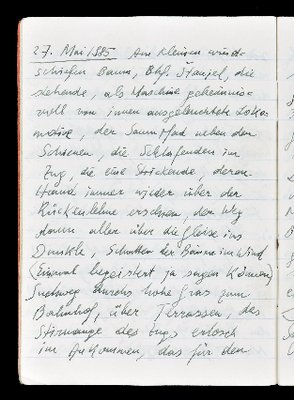 27. Mai 1985 Am kleinen wind-
schiefen Baum, Bhf. Štanjel, die
stehende, als Maschine geheimnis-
voll von innen ausgeleuchtete Lokomotive
, der Saum Pfad neben den
Schienen, die Schlafenden im
Zug, die eine Strickende, deren
Hände immer wieder über der
Rückenlehne erschienen, der Weg
dann aller über die Gleise ins
Dunkle, Schatten der Bäume im Wind
(Einmal begeistert ja sagen können)
Suchweg durchs hohe Gras zum
Bahnhof, über Terrassen, das
Stirnauge des Zugs erlosch
im Ankommen, das für den